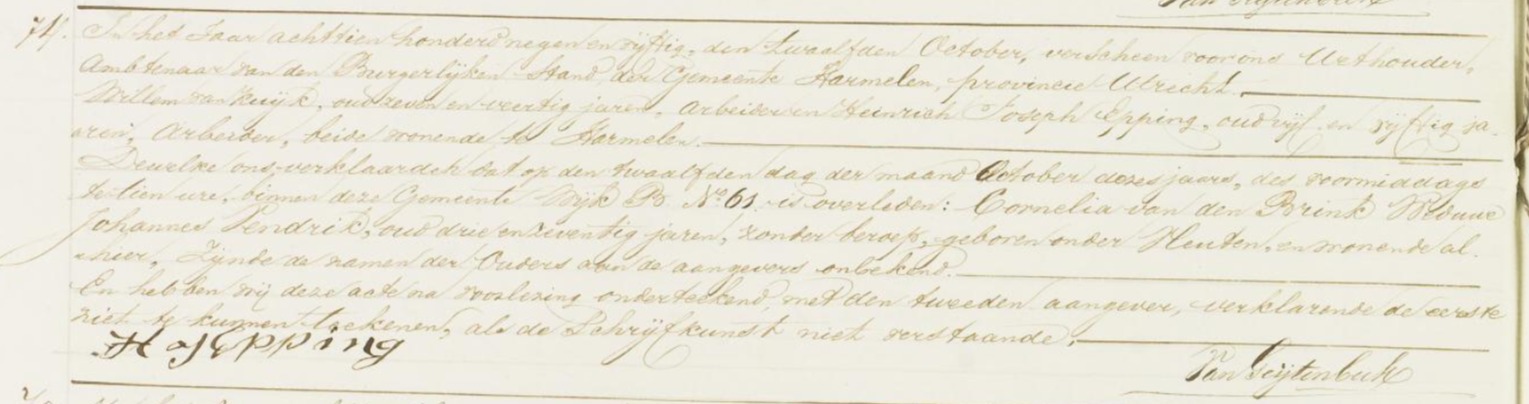 74.
In het Jaar achttien honderd negen en vijftig, den twaalfden October, verscheen voor ons Wethouder,
Ambtenaar van den Burgerlijken Stand der Gemeente Harmelen, provincie Utrecht.
Willem van Kuijk, oud zeven en veertig jaren, Arbeider en Heinrich Joseph Epping, oud vijf en vijftig ja-
ren, Arbeider, beide wonende te Harmelen.
Dewelke ons verklaarden dat op den twaalfden dag der maand October dezes jaars, des voormiddags
te tien ure, binnen deze Gemeente Wijk B No 61 is overleden: Cornelia van den Brink Weduwe
Johannes Hendrik, oud drie en zeventig jaren, zonder beroep, geboren onder Heuten, en wonende al-
hier, Zijnde de namen der Ouders aan de aangevers onbekend.
En hebben wij deze acte na voorlezing onderteekend, met den tweeden aangever, verklarende de eerste
niet te kunnen teekenen, als de Schrijfkunst niet verstaande.
H J Epping